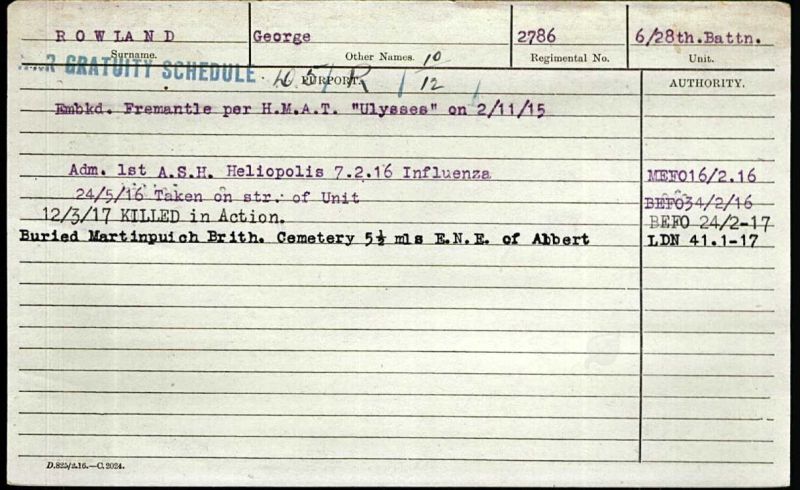 ROWLAND George 2786 6/28th.Battn.
Surname. Other Names. 10 Regimental No. Unit.
GRATUITY SCHEDULE PURPORT. R 12 AUTHORITY.
Embkd. Fremantle per H.M.A.T. "Ulysses" on 2/11/15
Adm. 1st A.S.H. Heliopolis 7.2.16 Influenza MEFO16/2.16
24/5/16 Taken on str. of Unit BEFO34/2/16
12/3/17 KILLED in Action. BEFO 24/2-17
Buried Martinpuich Brith. Cemetery 5½ mls E.N.E. of Albert LDN 41.1-17
D.825/2.16.—C.2024.